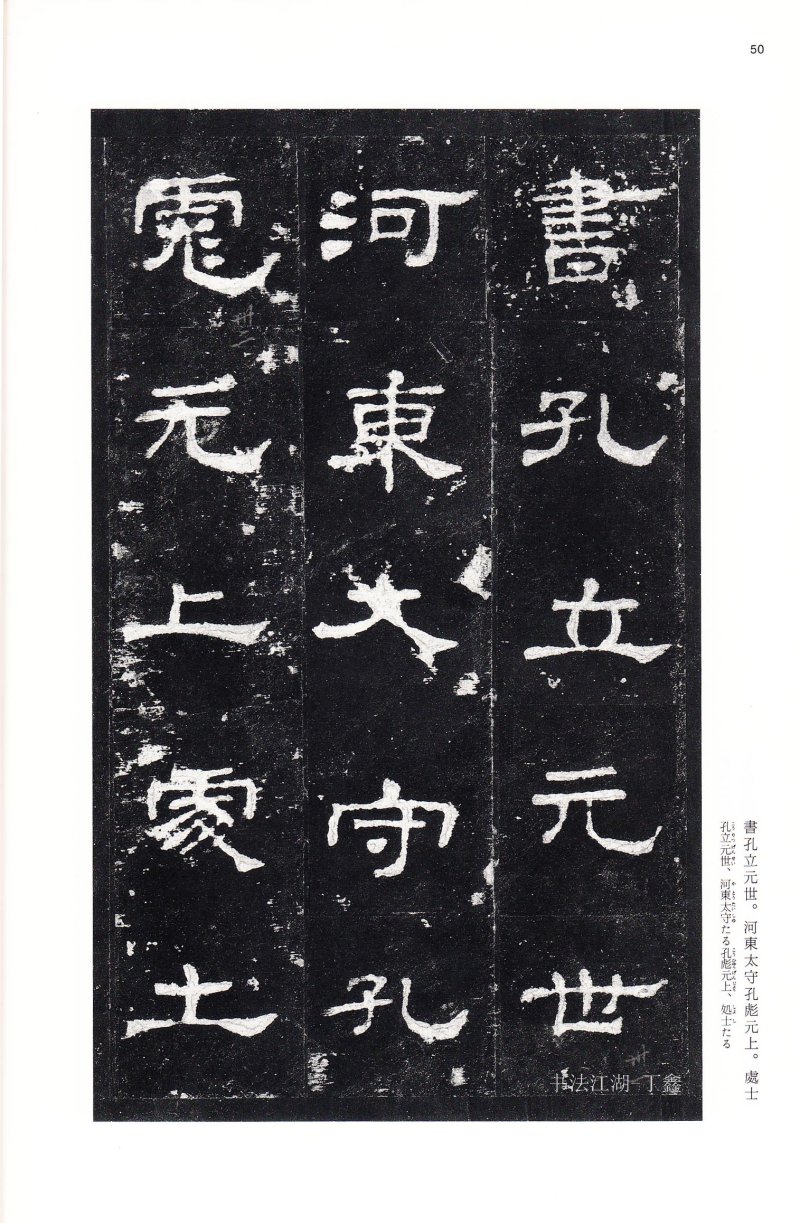 50
書孔立元世
河東大守孔
彪元上處士
書孔立元世。河東太守孔彪元上。處士
孔立元世、河東太守たる孔彪元上、処士たる
书法江湖 丁鑫